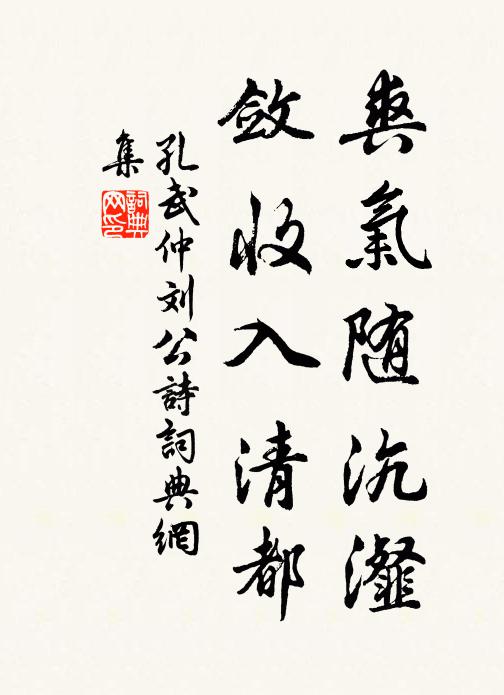 爽氣随沆瀣
斂收入清都
孔武仲刘公詩詞典網
集
詞典网印